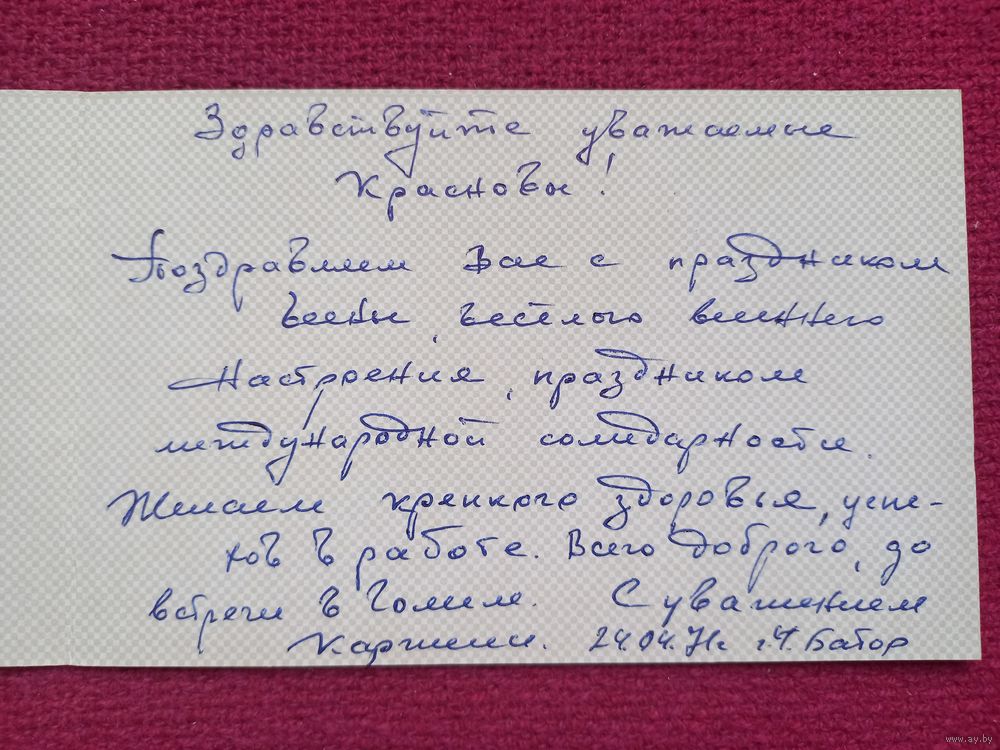 Здравствуйте уважаемые
Красновы!
Поздравляем Вас с праздником
весны, весёлого весеннего
настроения, праздником
международной солидарности.
Желаем крепкого здоровья, успе-
хов в работе. Всего доброго, до
встречи в Гомеле. С уважением
24.04.71г г.У.Батор
www.ay.by